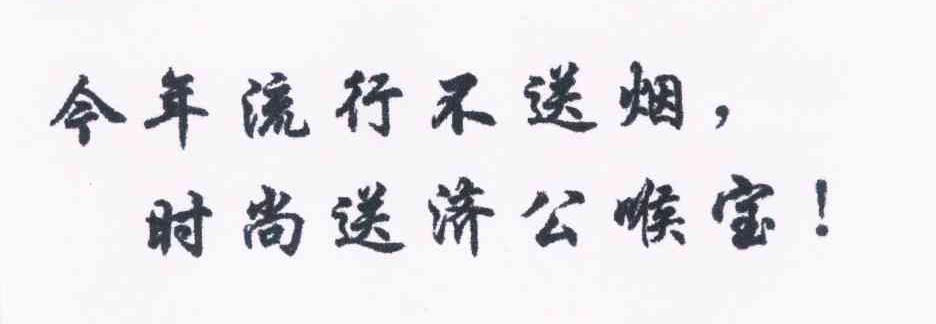 今年流行不送烟，
时尚送济公喉宝！